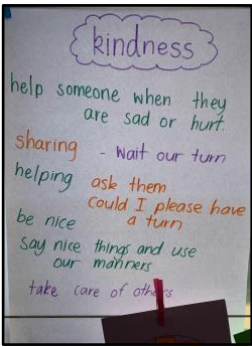 kindness
help someone when they
are sad or hurt.
sharing - wait our turn
helping ask them
could I please have
be nice a turn
say nice things and use
our manners
take care of others